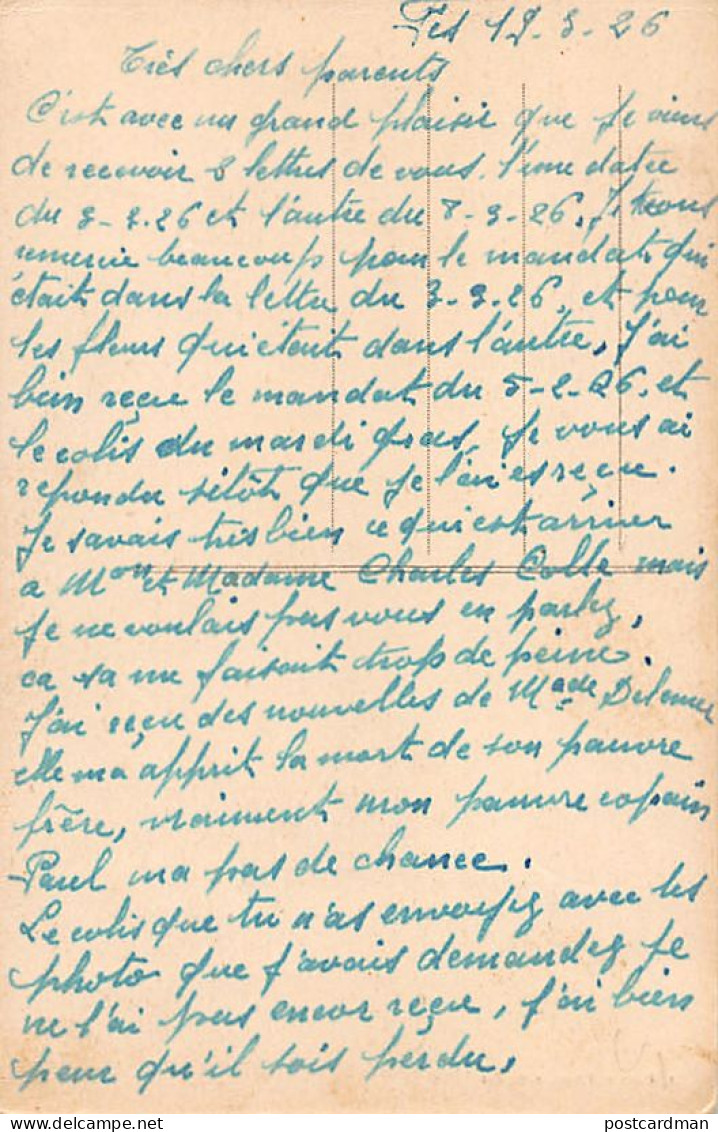 Fès 12-3-26
Très chers parents
C'est avec un grand plaisir que je viens
de recevoir 2 lettres de vous. l'une datée
du 3-3-26 et l'autre du 8-3-26. Je vous
remercie beaucoup pour le mandat qui
était dans la lettre du 3-3-26, et pour
les fleurs qui était dans l'autre, J'ai
bien reçue le mandat du 5-2-26. et
le colis du mardi gras, je vous ai
repondu sitôt que je l'ai reçue.
Je savais très bien ce qui est arriver
a Mon et Madame Charles Colle mais
je ne voulais pas vous en parlez,
ca sa me faisait trop de peine.
J'ai reçu des nouvelles de Made
elle ma apprit la mort de son pauvre
frère, vraiment mon pauvre copain
Paul na pas de chance.
Le colis que tu m'as envoyez avec les
photo que j'avais demandez je
ne l'ai pas encor reçue, j'ai bien
peur qu'il sois perdu,
postcardman